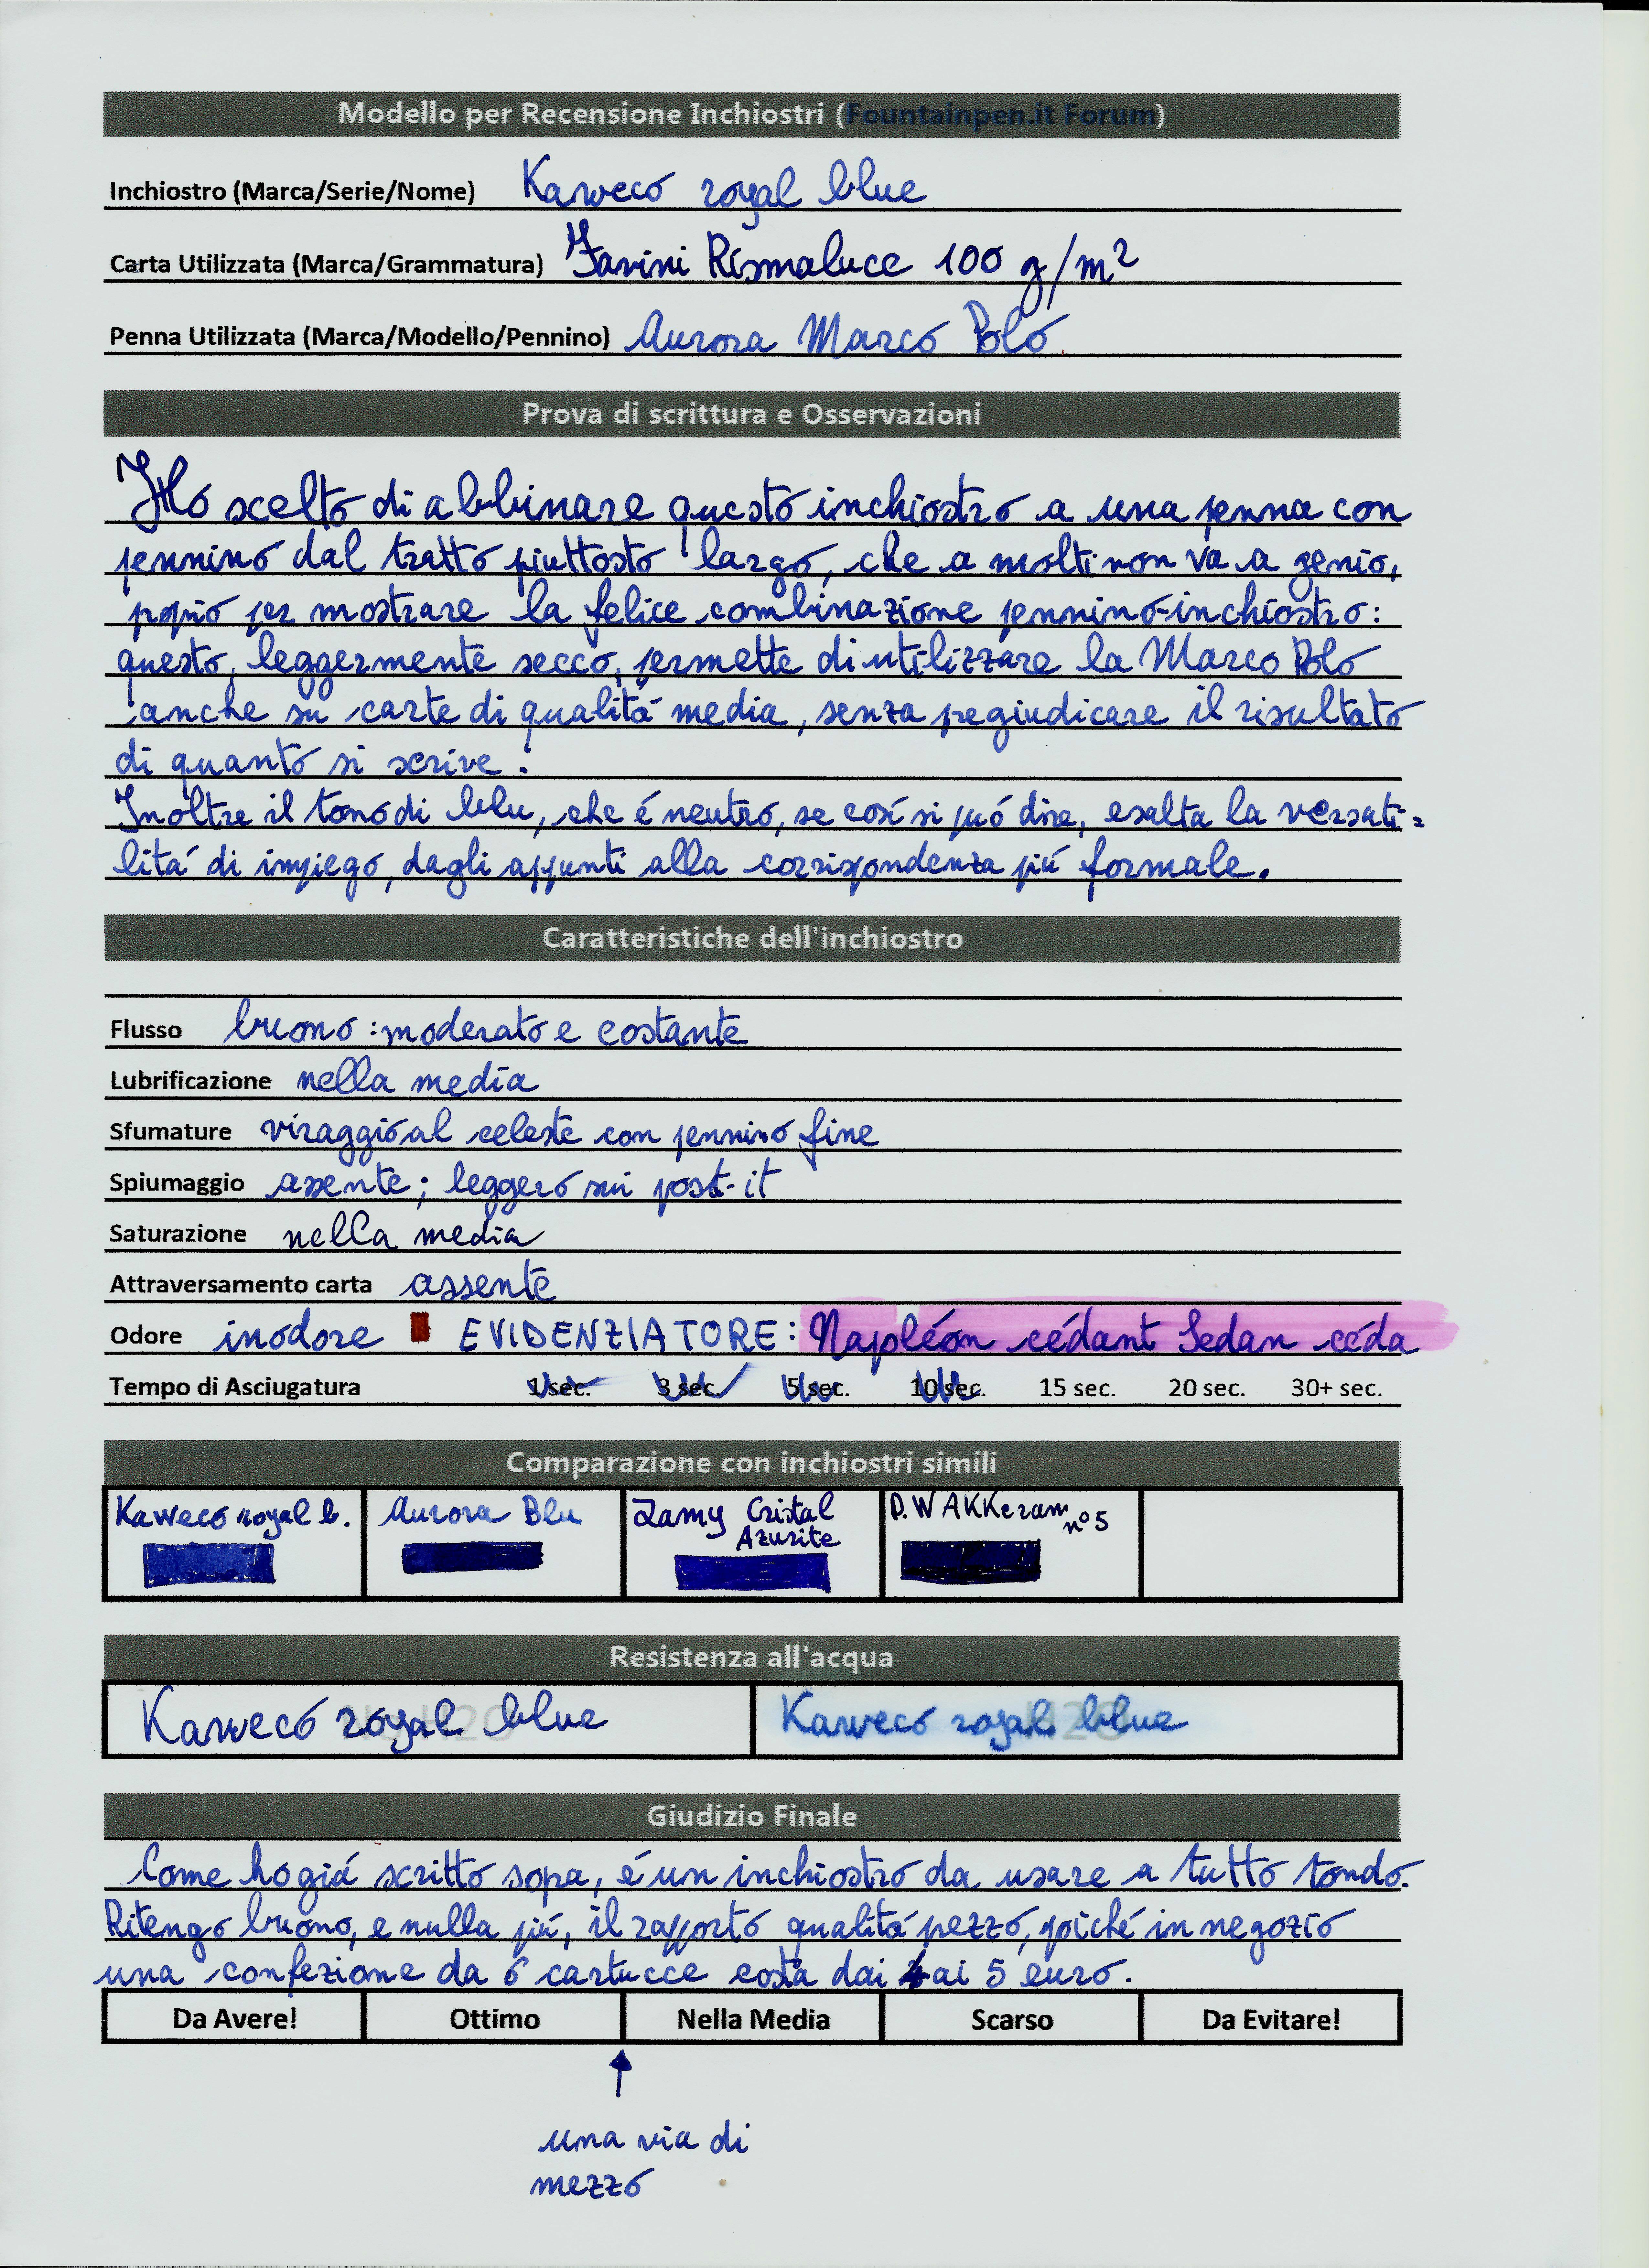 Modello per Recensione Inchiostri (Fountainpen.it Forum)
Inchiostro (Marca/Serie/Nome) Kaweco royal blue
Carta Utilizzata (Marca/Grammatura) Favini Rismaluce 100 g/m²
Penna Utilizzata (Marca/Modello/Pennino) Aurora Marco Polo
Prova di scrittura e Osservazioni
Ho scelto di abbinare questo inchiostro a una penna con
pennino dal tratto piuttosto largo, che a molti non va a genio,
poprio per mostrare la felice combinazione pennino-inchiostro:
questo, leggermente secco, permette di utilizzare la Marco Polo
anche su carte di qualità media, senza pegiudicare il risultato
di quanto si scrive.
Inoltre il tono di blu, che é neutro, se così si puó dire, esalta la versati=
litá di impiego, dagli appunti alla corrispondenza piú formale.
Caratteristiche dell'inchiostro
Flusso buono: moderato e costante
Lubrificazione nella media
Sfumature viraggio al celeste con pennino fine
Spiumaggio assente; leggero sui post-it
Saturazione nella media
Attraversamento carta assente
Odore inodore EVIDENZIATORE: Napoléon cédant Sedan céda
Tempo di Asciugatura 1 sec. 3 sec. 5 sec. 10 sec. 15 sec. 20 sec. 30+ sec.
Comparazione con inchiostri simili
Kaweco royal b. Aurora Blu Lamy Cristal Azurite P.W AKKeram n° 5
Resistenza all'acqua
Kaweco royal blue Kaweco royal blue
Giudizio Finale
Come ho giá scritto sopa, é un inchiostro da usare a tutto tondo.
Ritengo buono, e nulla piú, il rapporto qualitá pezzo, poiché in negozio
una confezione da 6 cartucce costa dai 4 ai 5 euro.
Da Avere! Ottimo Nella Media Scarso Da Evitare!
una via di
mezzo